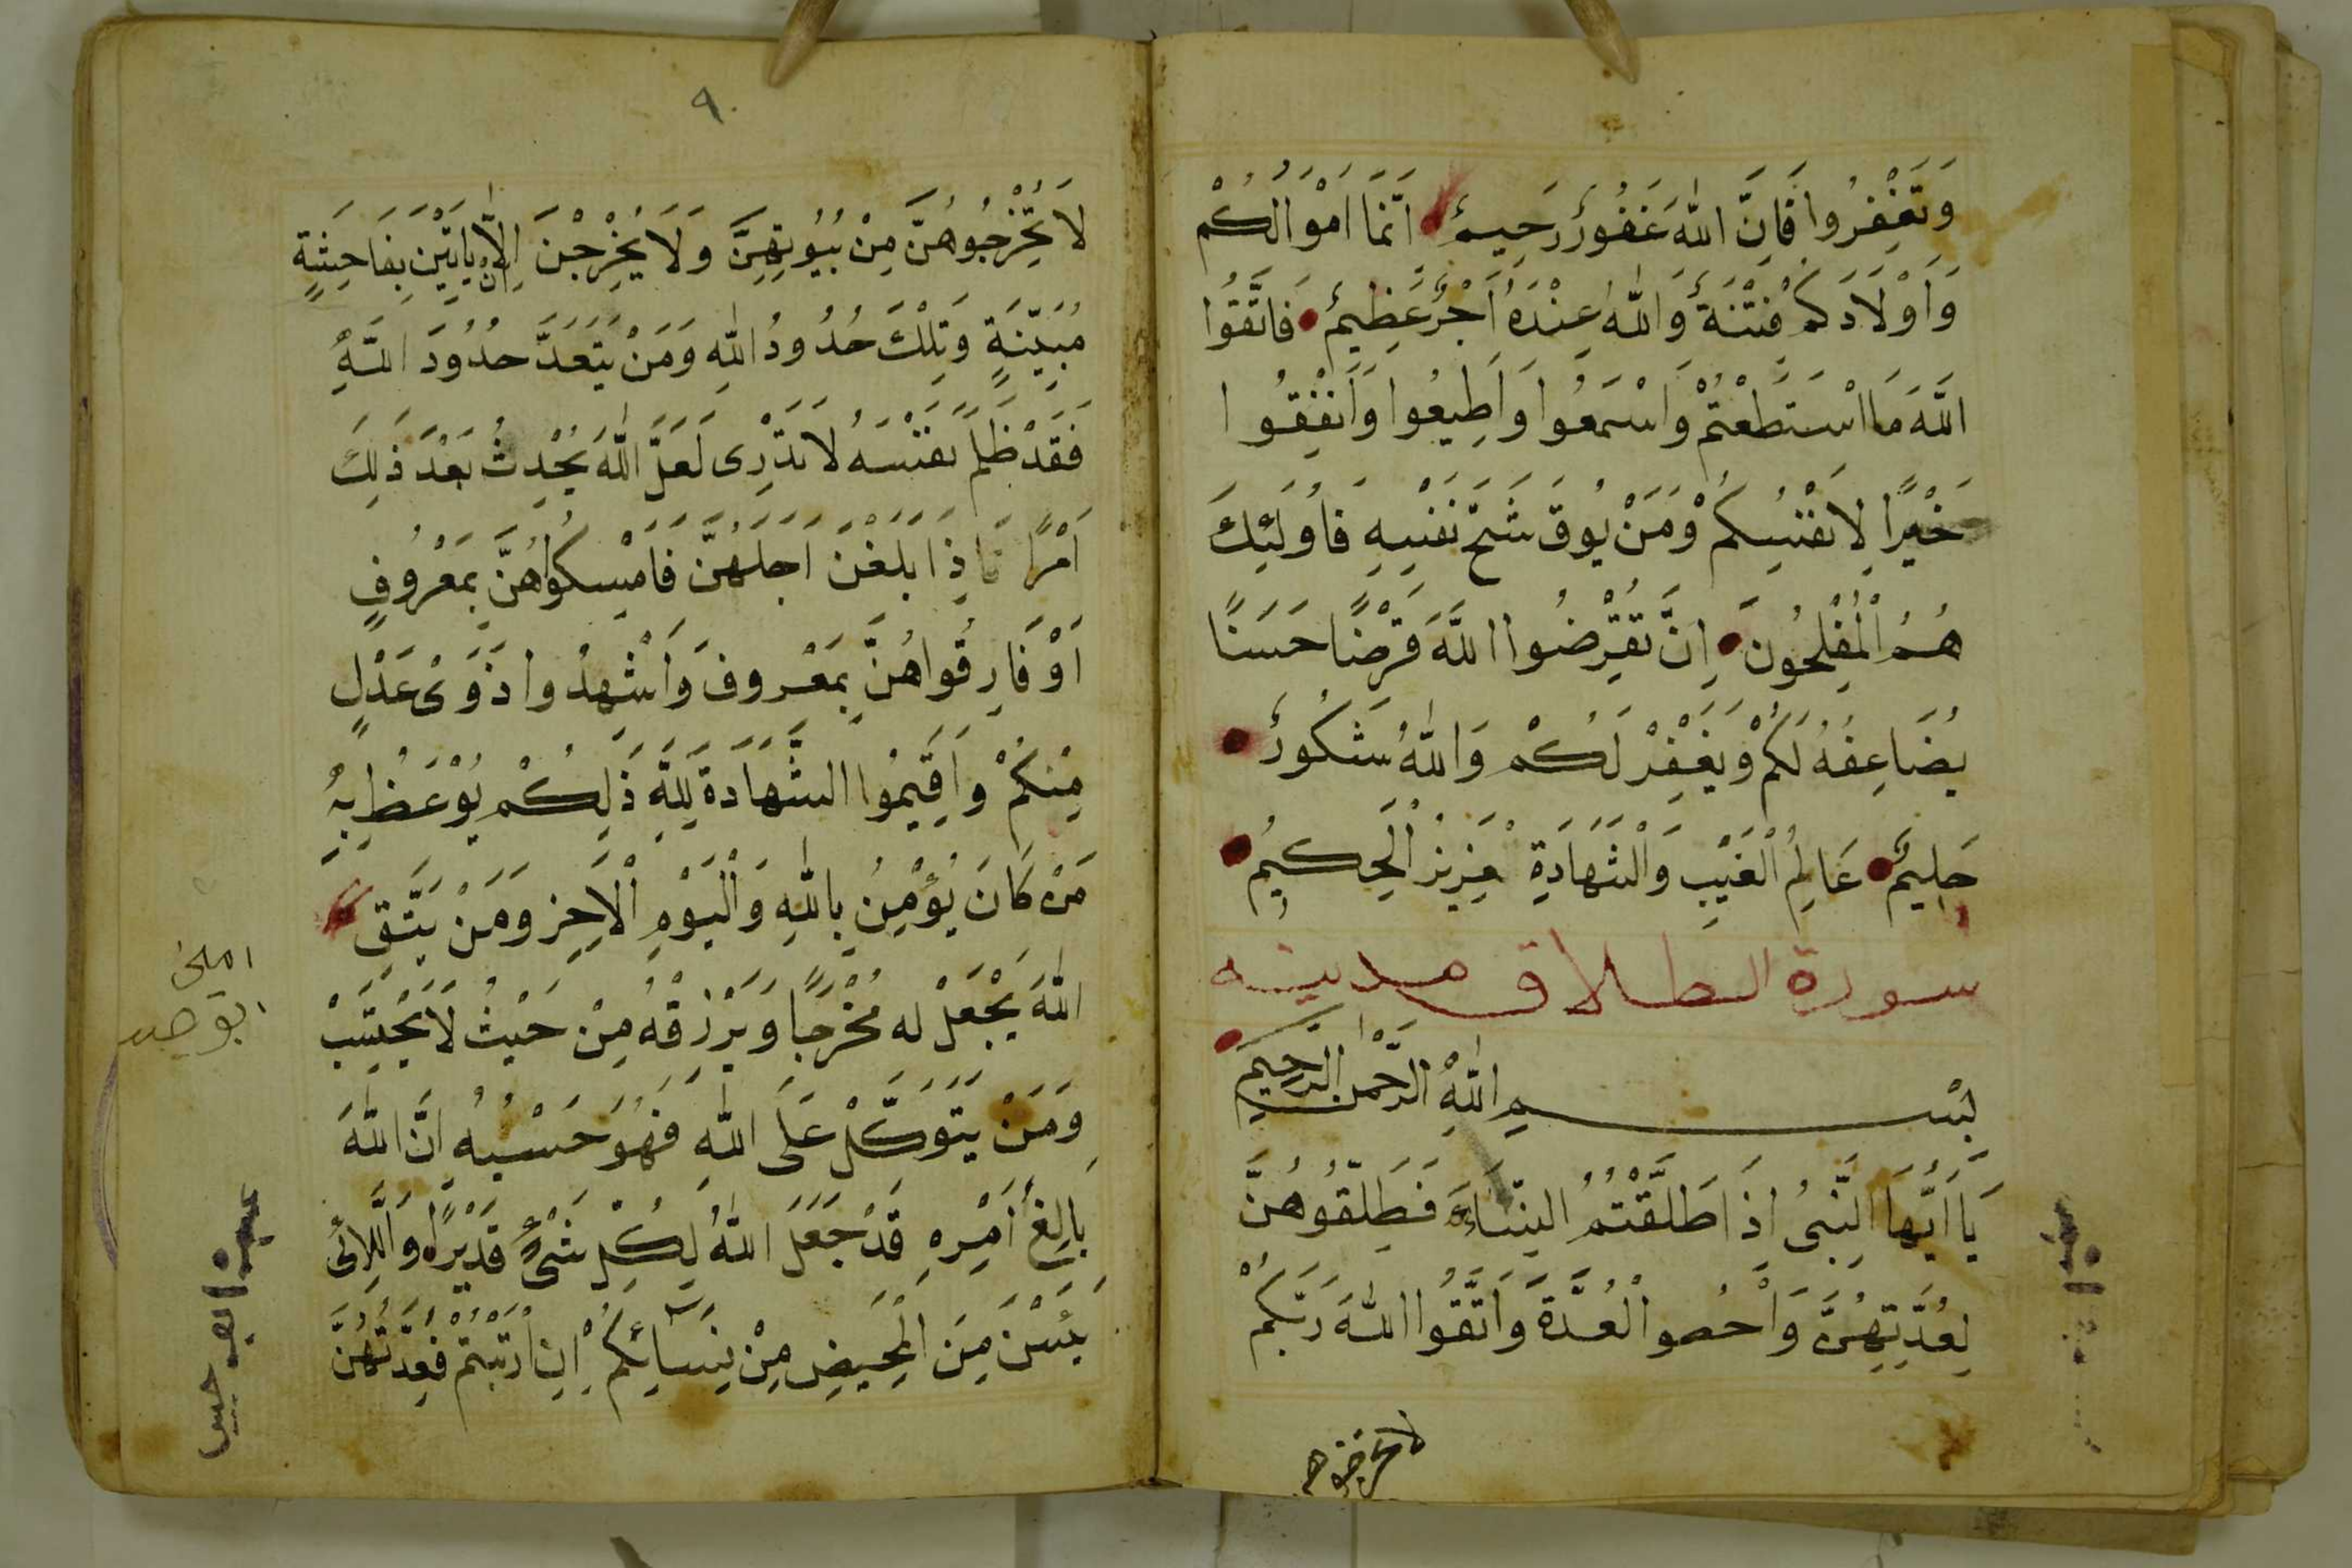 وَتَغْفِرُوا فَاِنَّ اللّٰهَ غَفُورٌ رَحِيمٌ اِنَّمَا اَمْوَالُكُمْ
وَاَوْلَادَكُمْ فِتْنَةٌ وَاللّٰهُ عِنْدَهُ اَجْرٌ عَظِيمٌ فَاتَّقُوا
اللّٰهَ مَا اسْتَطَعْتُمْ وَاسْمَعُوا وَاَطِيعُوا وَاَنْفِقُوا
خَيْرًا لِاَنْفُسِكُمْ وَمَنْ يُوقَ شُحَّ نَفْسِهِ فَاُولَئِكَ
هُمُ الْمُفْلِحُونَ اِنَّ تُقْرِضُوا اللّٰهَ قَرْضًا حَسَنًا
يُضَاعِفْهُ لَكُمْ وَيَغْفِرْ لَكُمْ وَاللّٰهُ شَكُورٌ
حَلِيمٌ عَالِمُ الْغَيْبِ وَالشَّهَادَةِ عَزِيزُ الْحَكِيمُ
سورة الطلاق مدينه
بِسْمِ اللّٰهِ الرَّحْمٰنِ الرَّحِيمِ
يَا اَيُّهَا النَّبِىُ اِذَا طَلَّقْتُمُ النِّسَاءَ فَطَلِّقُوهُنَّ
لِعُدَّتِهِنَّ وَاَحْصُوا الْعُدَّةَ وَاتَّقُوا اللّٰهَ رَبَّكُمْ
٩٠
لَا تُخْرِجُوهُنَّ مِنْ بُيُوتِهِنَّ وَلَا يَخْرِجْنَ اِلَّا اَنْ يَاتِيَنَ بِفَاحِشَةٍ
مُبَيِّنَةٍ وَتِلْكَ حُدُودُ اللّٰهِ وَمَنْ يَتَعَدَّ حُدُودَ اللّٰهِ
فَقَدْ ظَلَمَ نَفْسَهُ لَا تَدْرِى لَعَلَّ اللّٰهَ يُحْدِثُ بَعْدَ ذٰلِكَ
اَمْرًا فَاِذَا بَلَغْنَ اَجَلَهُنَّ فَامْسِكُواهُنَّ بِمَعْرُوفٍ
اَوْ فَارِقُواهُنَّ بِمَعْرُوفَ وَاَشْهِدُوا ذَوَىْ عَدْلٍ
مِنْكُمْ وَاَقِيمُوا الشَّهَادَةَ لِلّٰهِ ذَلِكُمْ يُوْعَظُ بِهِ
مَنْ كَانَ يُؤْمِنُ بِاللّٰهِ وَالْيَوْمِ الْاٰخِرِ وَمَنْ يَتَّقِ
اللّٰهَ يَجْعَلْ له مَخْرَجًا وَيَرْزُقْهُ مِنْ حَيْثُ لَا يَحْتَسِبْ
وَمَنْ يَتَوَكَّلْ عَلَى اللّٰهِ فَهُوَ حَسْبُهُ اِنَّ اللّٰهَ
بِالِغُ اَمْرِهِ قَدْ جَعَلَ اللّٰهُ لِكُلِّ شَىْءٍ قَدْيرًا وَاللَّائِى
يَئِسْنَ مِنَ الْمَحِيضِ مِنْ نِسَائِكُمْ اِنِ ارْتَبْتُمْ فَعِدَّتُهُنَّ